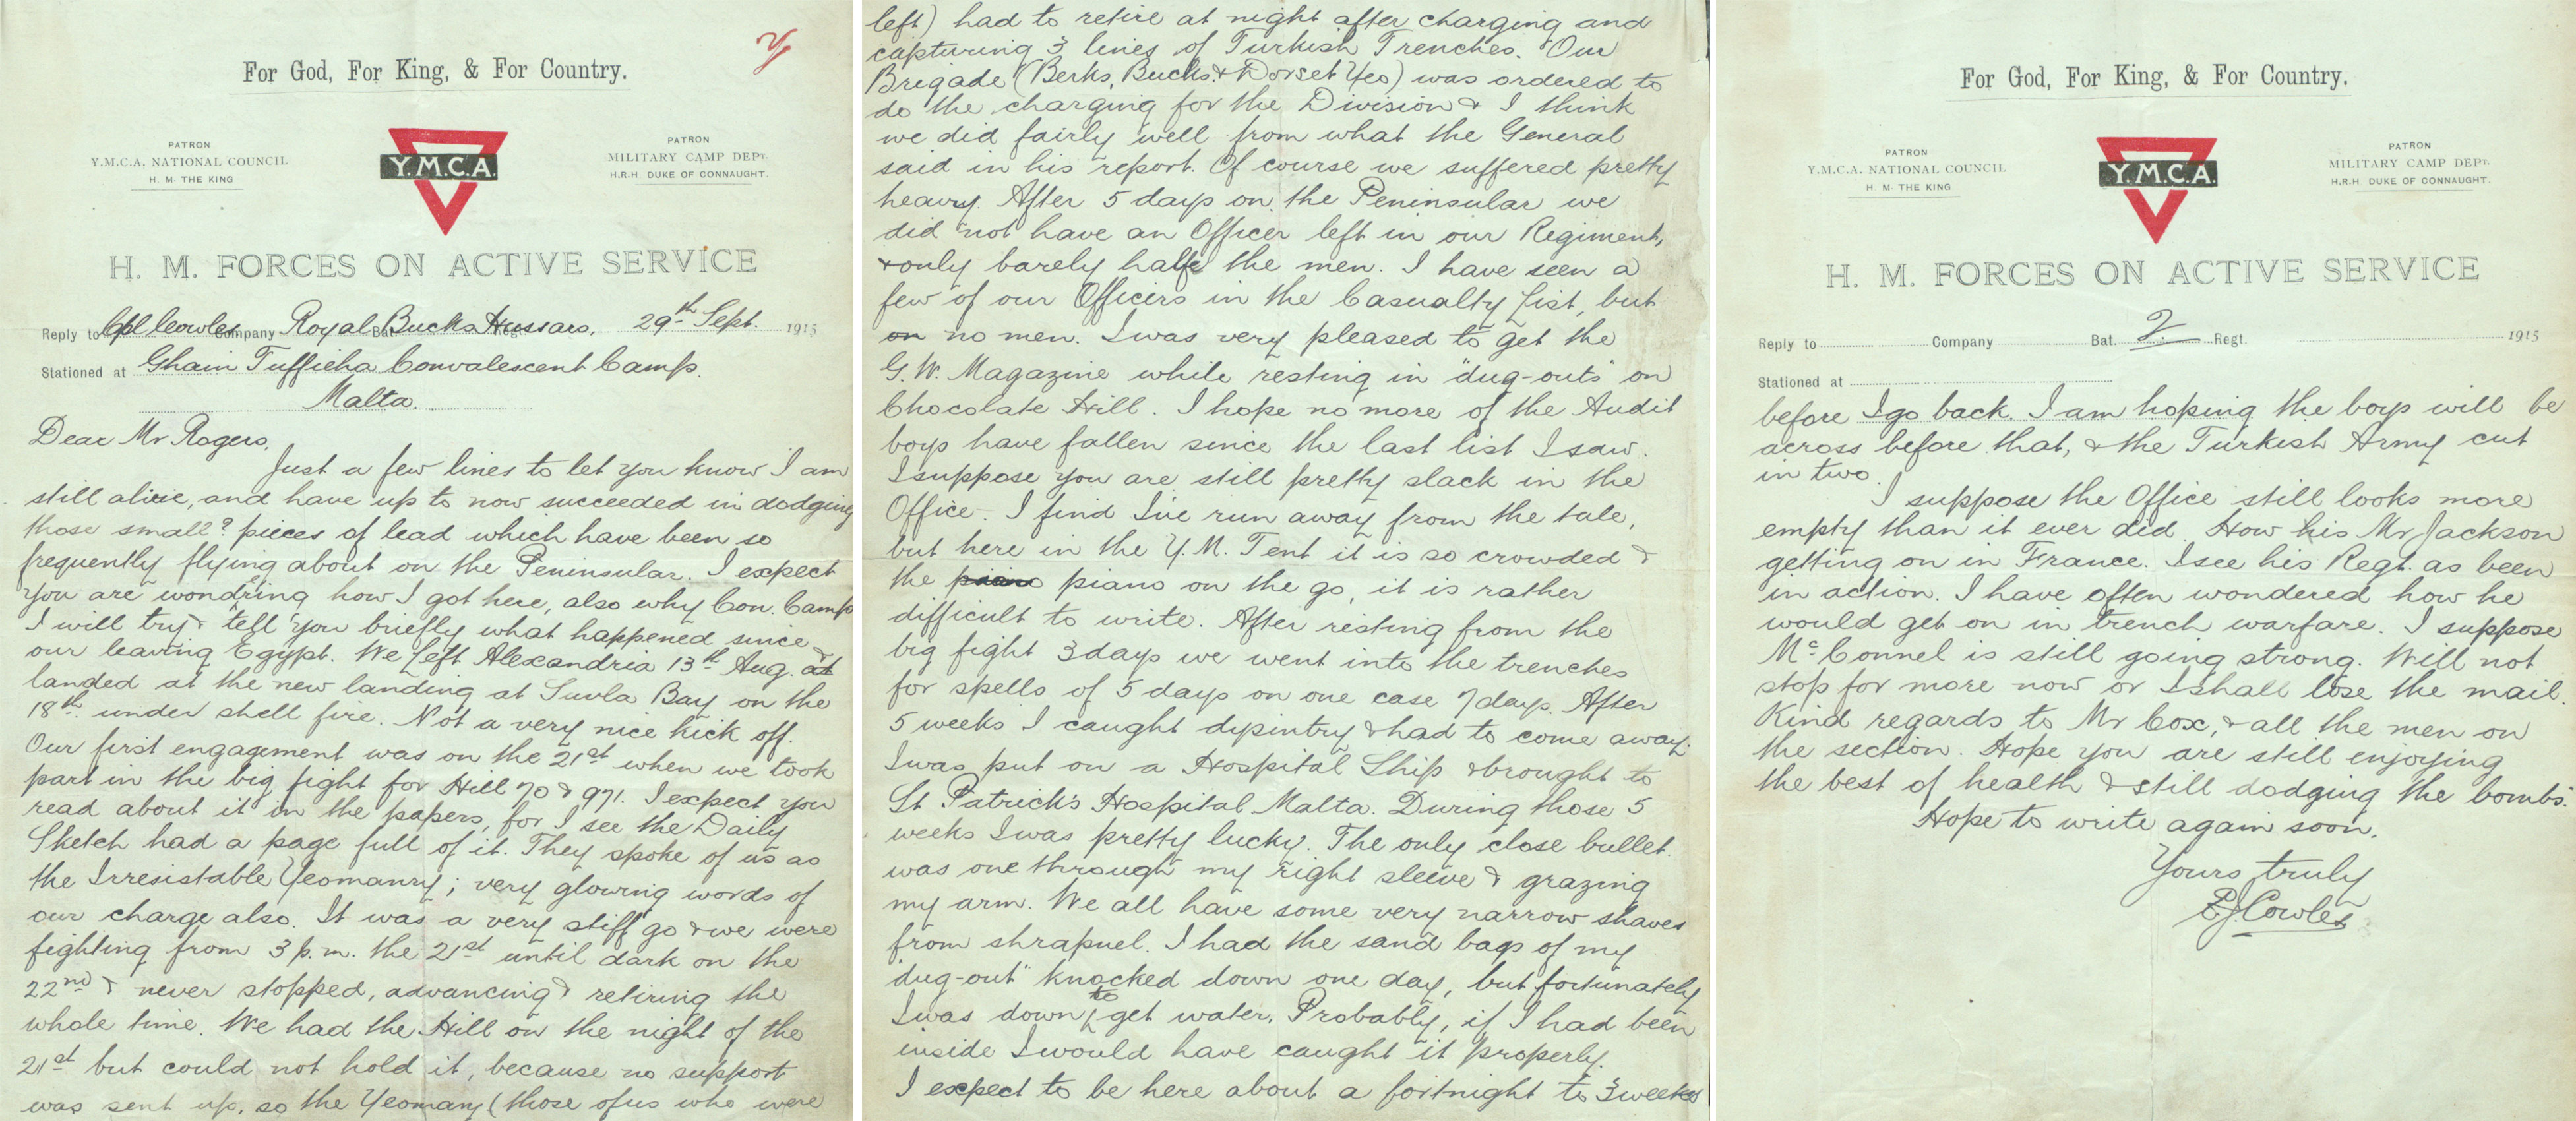 For God, For King, & For Country.
PATRON
Y.M.C.A. NATIONAL COUNCIL
H. M. THE KING
Y.M.C.A.
PATRON
MILITARY CAMP DEPT.
H.R.H DUKE OF CONNAUGHT.
H. M. FORCES ON ACTIVE SERVICE
Reply to Cpl Cowles Company Royal Bat. Bucks Hussars, 29th Sept. 1915
Stationed at Ghain Tuffieha Convalescent Camp.
Malta.
Dear Mr Rogers,
Just a few lines to let you know I am
still alive, and have up to now succeeded in dodging
those small? pieces of lead which have been so
frequently flying about on the Peninsular. I expect
you are wondring how I got here, also why Con. Camp
I will try & tell you briefly what happened since
our leaving Egypt. We left Alexandria 13th Aug. &
landed at the new landing at Suvla Bay on the
18th. under shell fire. Not a very nice kick off.
Our first engagement was on the 21st when we took
part in the big fight for Hill 70 & 971. I expect you
read about it in the papers, for I see the Daily
Sketch had a page full of it. They spoke of us as
the Irresistable Yeomanry; very glowing words of
our charge also. It was a very stiff go & we were
fighting from 3 p.m. the 21st until dark on the
22nd & never stopped, advancing & retiring the
whole time. We had the Hill on the night of the
21st but could not hold it, because no support
was sent up, so the Yeomany (those of us who were
left) had to retire at night after charging and
capturing 3 lines of Turkish Trenches. Our
Brigade (Berks, Bucks. & Dorset Yeo) was ordered to
do the charging for the Division & I think
we did fairly well from what the General
said in his report. Of course we suffered pretty
heavy. After 5 days on the Peninsular we
did not have an Officer left in our Regiment,
& only barely half the men. I have seen a
few of our Officers in the Casualty List, but
on no men. I was very pleased to get the
G.W. Magazine while resting in "dug-outs" on
Chocolate Hill. I hope no more of the Audit
boys have fallen since the last list I saw.
I suppose you are still pretty slack in the
Office. I find I've run away from the tale,
but here in the Y.M. Tent it is so crowded &
the piano piano on the go, it is rather
difficult to write. After resting from the
big fight 3 days we went into the trenches
for spells of 5 days on one case 7 days. After
5 weeks I caught dysintry & had to come away.
I was put on a Hospital Ship & brought to
St Patrick's Hospital Malta. During those 5
weeks I was pretty lucky. The only close bullet
was one through my right sleeve & grazing
my arm. We all have some very narrow shaves
from shrapnel. I had the sand bags of my
"dug-out" knocked down one day, but fortunately
I was down to get water. Probably, if I had been
inside I would have caught it properly.
I expect to be here about a fortnight to 3 weeks
For God, For King, & For Country.
PATRON
Y.M.C.A. NATIONAL COUNCIL
H. M. THE KING
Y.M.C.A.
PATRON
MILITARY CAMP DEPT.
H.R.H DUKE OF CONNAUGHT.
H. M. FORCES ON ACTIVE SERVICE
Reply to Company Bat. 2. Regt. 1915
Stationed at
before I go back. I am hoping the boys will be
across before that, & the Turkish Army cut
in two.
I suppose the Office still looks more
empty than it ever did. How his Mr Jackson
getting on in France. I see his Regt. as been
in action. I have often wondered how he
would get on in trench warfare. I suppose
Mc Connel is still going strong. Will not
stop for more now or I shall lose the mail.
Kind regards to Mr Cox, & all the men on
the section. Hope you are still enjoying
the best of health & still dodging the bombs.
Hope to write again soon.
Yours truly
EJ Cowles